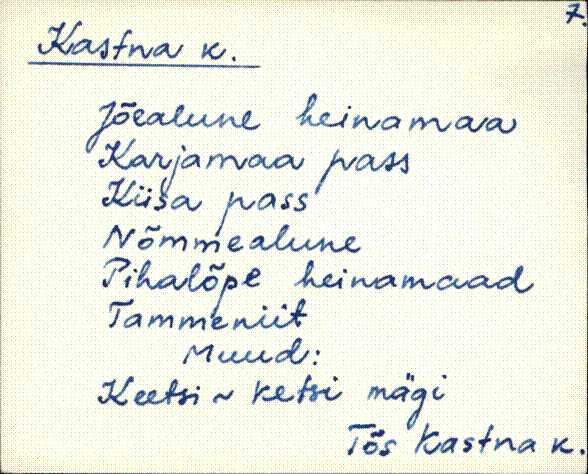 7.
Kastna k.
Jõealune heinamaa
Karjamaa pass
Kiisa pass
Nõmmealune
Pihalõpe heinamaad
Tammeniit
Muud:
Keetsi ~ Ketsi mägi
Tõs Kastna k.